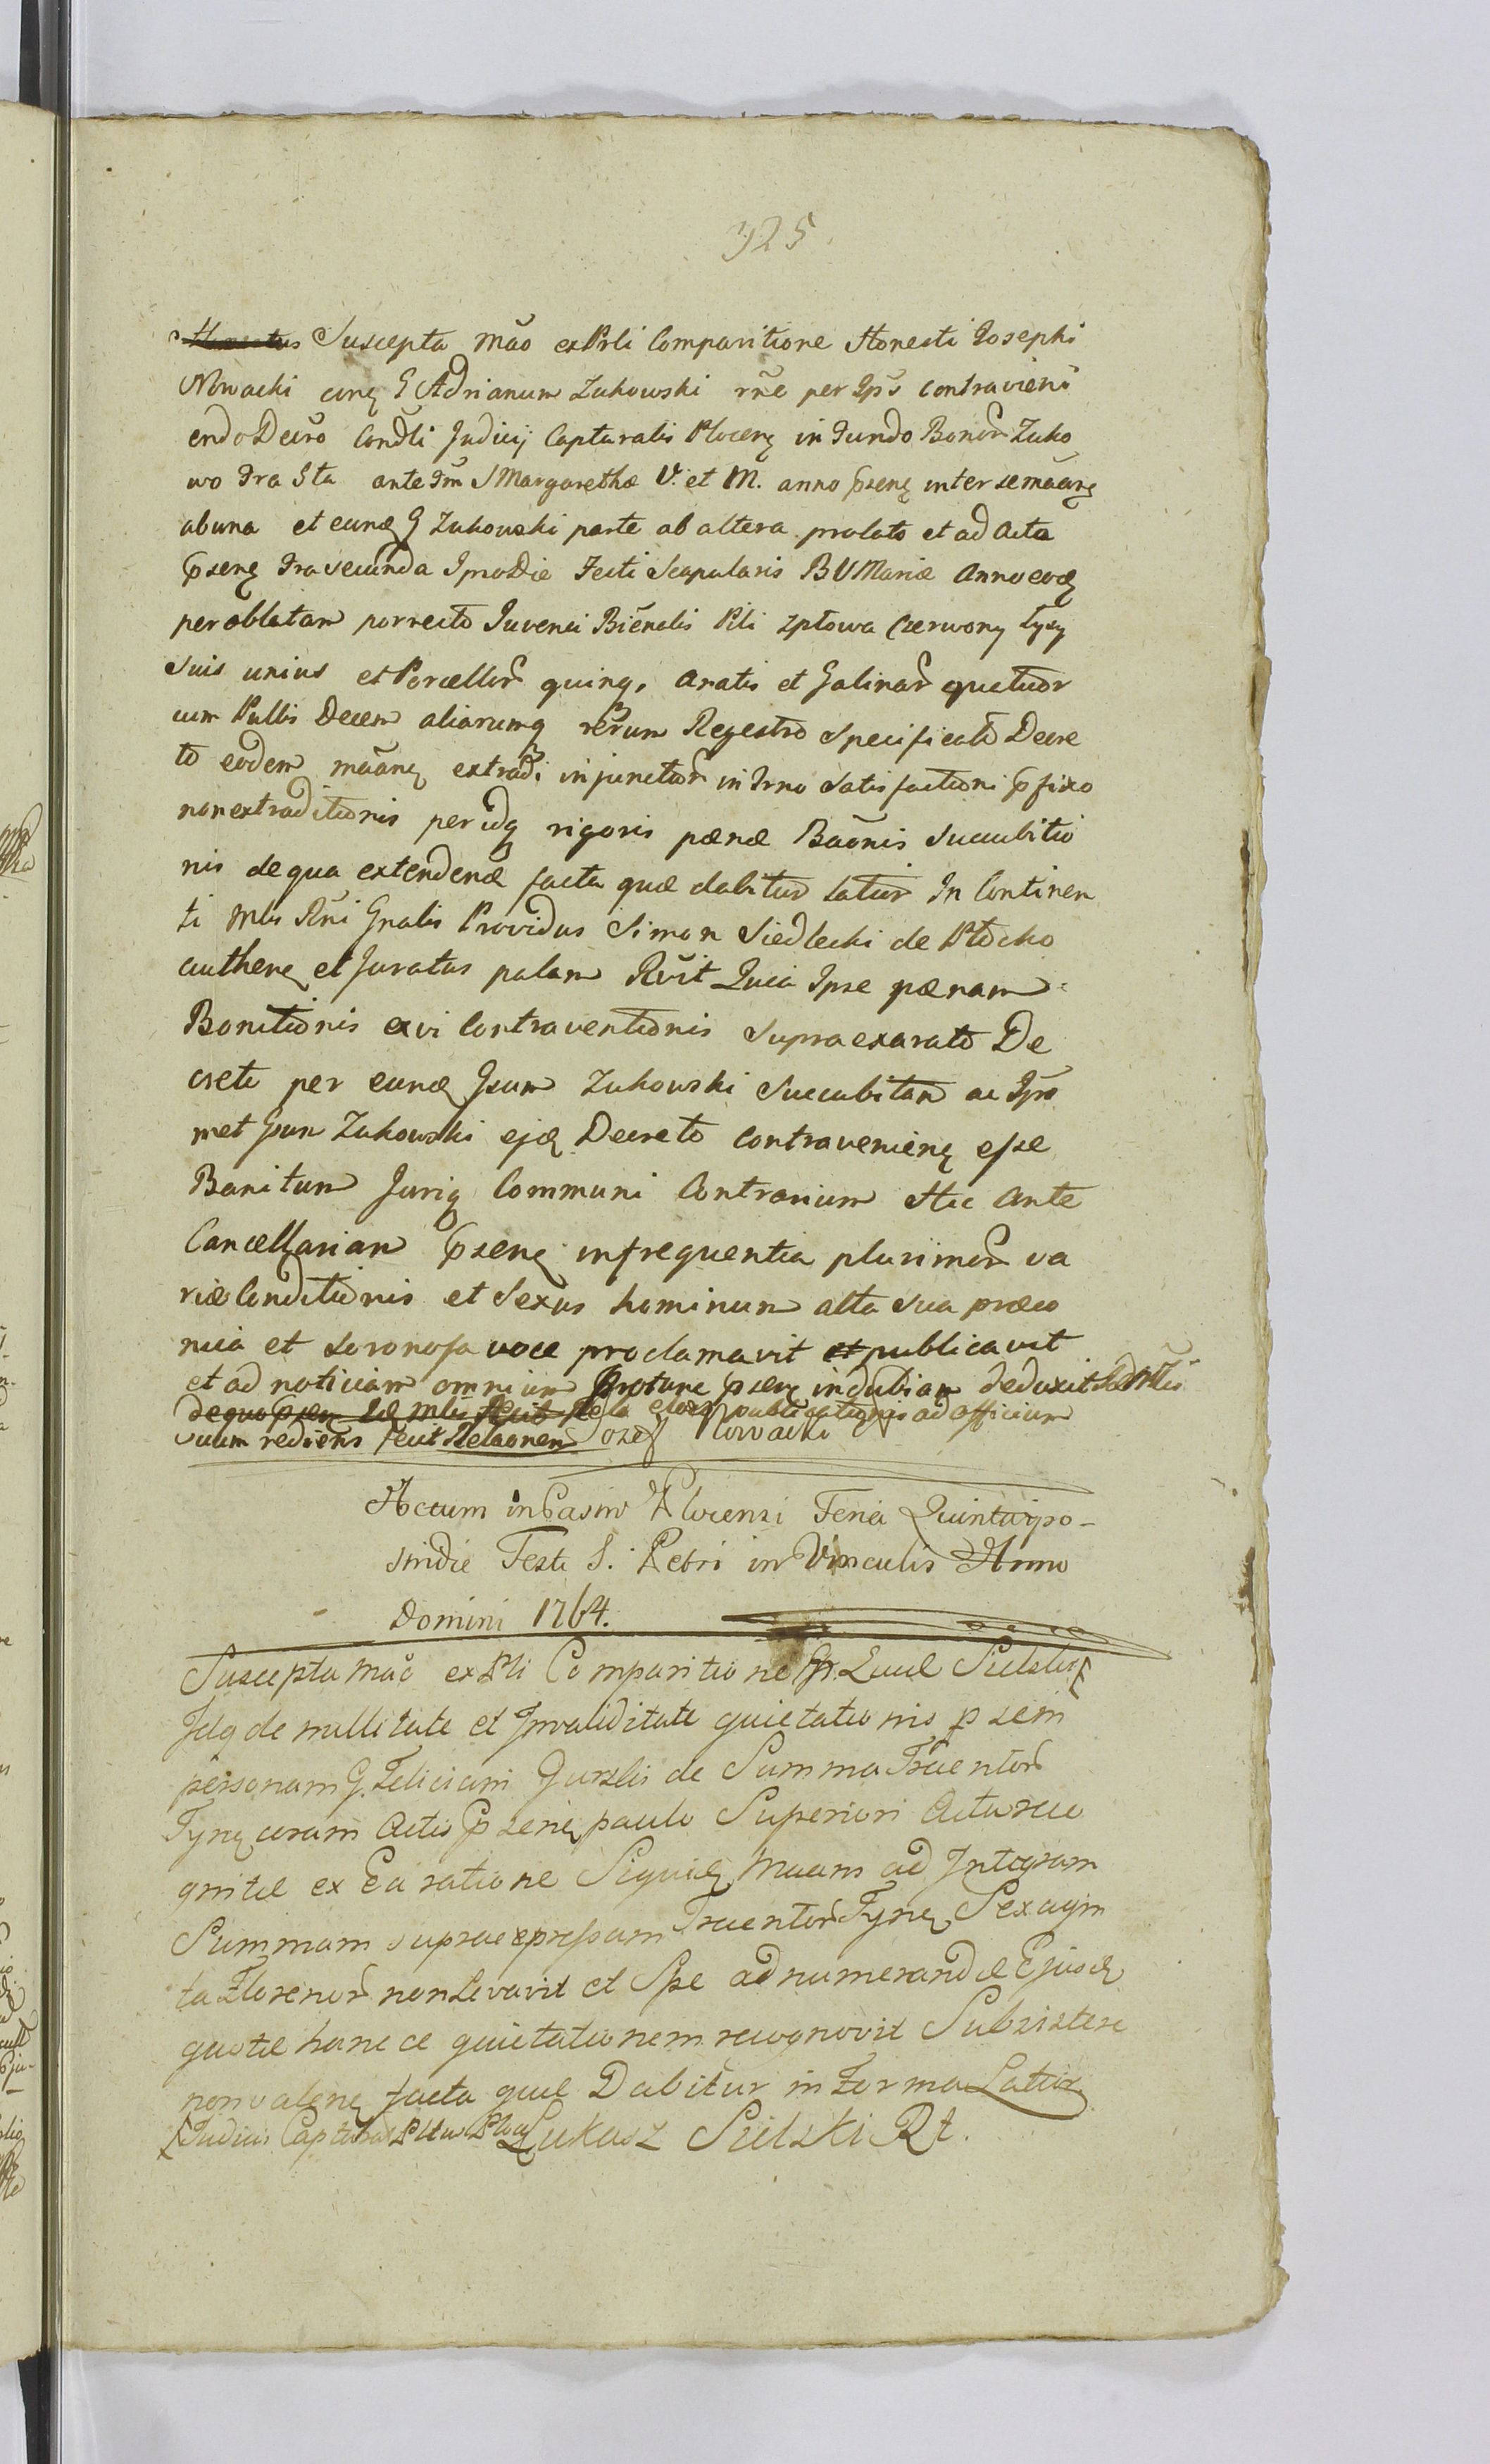 325
Suscepta mão ex Prli Comparitione Honesti Josephi
Nowacki conȩ G Adrianum Zukowski rñe per Ips̃ contravieni
endo Decr̃o Condli Judicij Capturalis Plocenȩ in Fundo Bonor̃ Zuko
wo Fra Sta ante Fm̃ S Margarethæ V. et M. anno p̃senȩ inter se mãanȩ
ab una et eundȩ G Zukowski parte ab altera prolato et ad Acta
p̃senȩ Fra secunda Ipso Die Festi Scapularis B V Mariæ Anno eodȩ
per oblatam porrecto Juvenci Biẽnalis Pili zplowa Czerwony Łysy
Suis unius et Porcellor̃ quinq, Anatis et Galinar̃ quatuor
cum Pullis Decem aliarumq rerum Regestro Specificato Decre
to eodem mãanȩ extradi injunctar̃ in Trno Satisfactioni p̃fixo
non extraditionis per idq rigoris pænæ Bãonis Succubitio
nis de qua extendendȩ facta quæ dabitur latius In Continen
ti Mlis Rñi Gnalis Providus Simon Siedlecki de Plocko
authenȩ et Juratus palam Rvit Quia Ipse pænam
Banitionis ex vi Contraventionis supra exarato De
creto per eundȩ Gsum Zukowski Succubitam ac Ips̃
met Gsum Zukowski ejdȩ Decreto contravenienȩ esse
Banitum Juriq Communi Contrarium Hic Ante
Cancellariam p̃senȩ in frequentia plurimor̃ va
riæ Conditionis et Sexus hominum alta sua præco
nica et sonorosa voce proclamavit et publicavit
et ad noticiam omnium protunc p̃senȩ indubiam deduxit
de quo publicationis ad officium
suum rediens fecit Relaõnem Jozef Nowacki
Actum in Castro Plocensi Feria Quinta ipo-
stridie Festi S. Petri in Vinculis Anno
Domini 1764.
Suscepta mão ex Pli Comparitione Gr. Lucæ Sielski
Idq de nullitate et Invaliditate quietationis p sem
personam G. Feliciani Gurski de Summa Trecentor̃
Tynȩ coram Actis p̃senȩ paulo Superiori Actu reco
gnitæ ex Ea ratione Siquidȩ Maans ad Integram
Summam supra expressam Trecentor̃ Tynȩ Sexagin
ta Florenor̃ non Levavit et Spe adnumerandæ Ejusdȩ
quotæ hance quietationem recognovit Subsistere
non valenȩ facta quæ Dabitur in Forma Latiori
Judicis Capturalis Łukasz Sielski Rt.